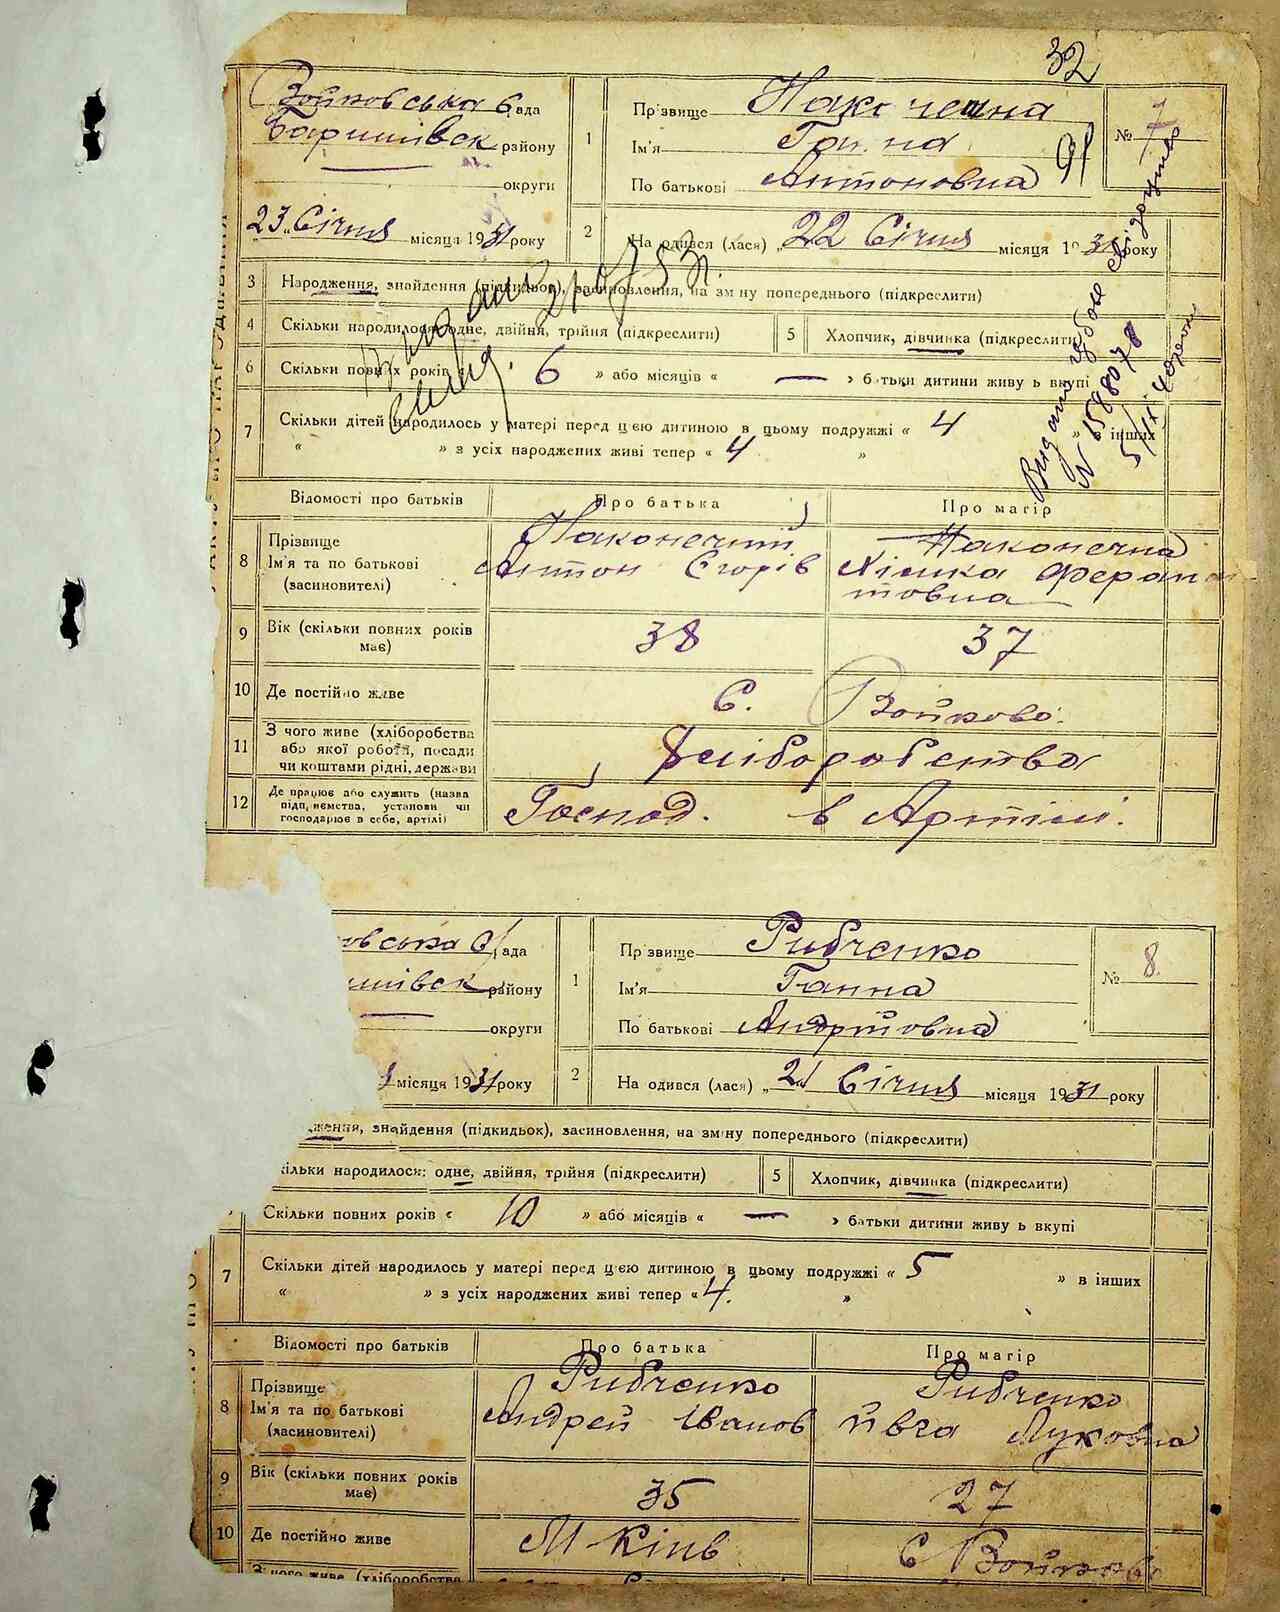 32
Войковська с/рада
Баришівськ району
округи
23 Січня місяця 1931 року
1
Прізвище Наконечна
Ім'я Ганна
По батькові Антоновна
91
№ 7
2
Народився (лася) „22 Січня місяця 1931 року
3 Народження, знайдення (підкидьок), засиновлення, на зміну попереднього (підкреслити)
4 Скільки народилося: одне, двійня, трійня (підкреслити)
5 Хлопчик, дівчинка (підкреслити)
6 Скільки повних років « 6 » або місяців « — » батьки дитини живуть вкупі
7 Скільки дітей народилось у матері перед цією дитиною в цьому подружжі « 4 » в інших
« » з усіх народжених живі тепер « 4 »
Видано
Видано
№ 1588078
Відомості про батьків Про батька Про матір
8 Прізвище Ім'я та по батькові (засиновителі)
Наконечний Антон Єгорів
Наконечна Хімка
9 Вік (скільки повних років має) 38 37
10 Де постійно живе С. Войково.
11 З чого живе (хліборобства або якої роботи, посади чи коштами рідні, держави
Хліборобства
12 Де працює або служить (назва підприємства, установи чи господарює в себе, артілі)
Господ. в Артілі.
овська с/рада
ишівськ району
округи
місяця 1931 року
1
Прізвище Рибченко
Ім'я Ганна
По батькові
№ 8.
2
Народився (лася) „21 Січня місяця 1931 року
ження, знайдення (підкидьок), засиновлення, на зміну попереднього (підкреслити)
кільки народилося: одне, двійня, трійня (підкреслити)
5 Хлопчик, дівчинка (підкреслити)
Скільки повних років « 10 » або місяців « — » батьки дитини живуть вкупі
7 Скільки дітей народилось у матері перед цією дитиною в цьому подружжі « 5 » в інших
« » з усіх народжених живі тепер « 4. »
Відомості про батьків Про батька Про матір
8 Прізвище Ім'я та по батькові (засиновителі)
Рибченко Андрей Іванов
Рибченко Ивга Луковна
9 Вік (скільки повних років має) 35 27
10 Де постійно живе М Київ С Войково
З чого живе (хліборобства